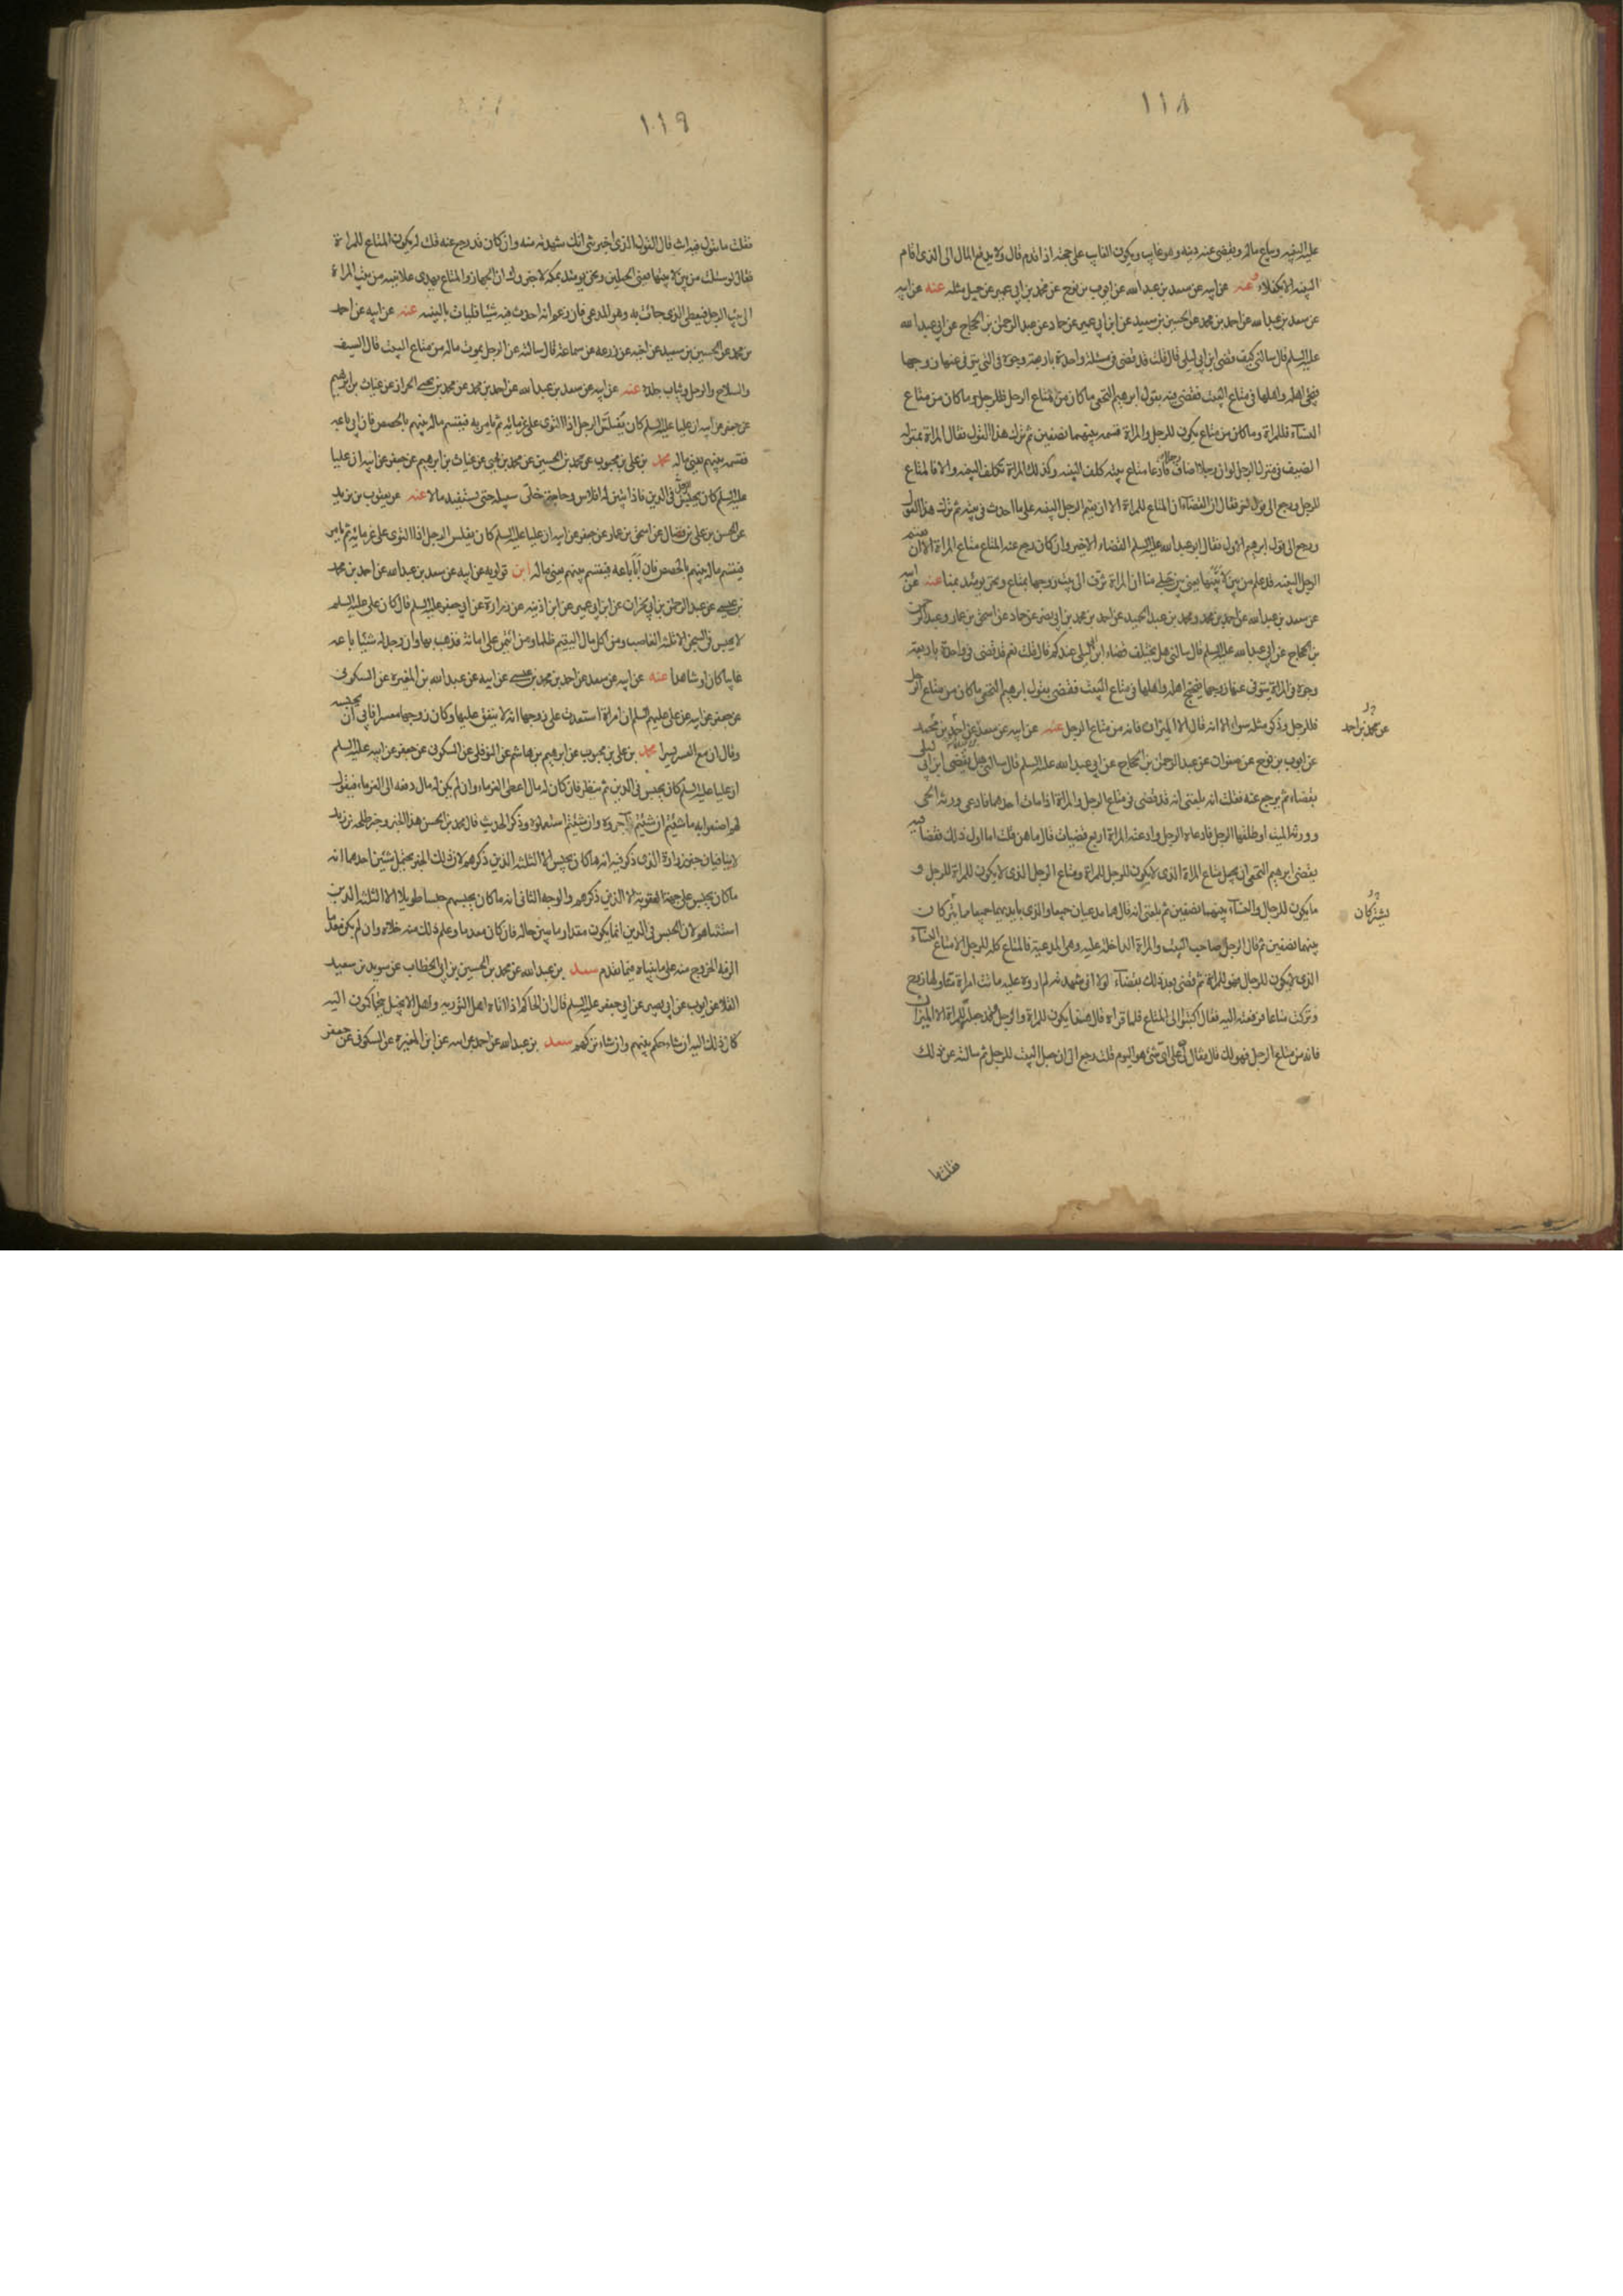 ١١٨
عليه البينة ويباع ماله ويقضى عنه دينه وهو غايب ويكون الغايب على حجته اذا قدم قال ولا يدفع المال الى الذي اقام
البينة الا بكفلاء وعنه عن ابيه عن سعد بن عبد الله عن ايوب بن نوح عن محمد بن ابي عمير عن جميل مثله عنه عن ابيه
عن سعد بن عبد الله عن احمد بن محمد عن الحسين بن سعيد عن ابن ابي عمير عن حماد عن عبد الرحمن بن الحجاج عن ابي عبد الله
عليه السلم قال سالني كيف قضى ابن ابي ليلى قال قلت قد قضى في مسئلة واحدة باربعة وجوه في التي يتوفى عنها زوجها
فيجئ اهله واهلها في متاع البيت فقضى فيه بقول ابرهيم النخعي ما كان من متاع الرجل فللرجل وما كان من متاع
النسآء فللمراة وما كان من متاع يكون للرجل والمراة قسمه بينهما نصفين ثم ترك هذا القول فقال المراة بمنزلة
الضيف في منزل الرجل لو ان رجلا اضاف رجلا فادعا متاع بيته كلف البينة وكذلك المراة تكلف البينة والا فالمتاع
للرجل ورجع الى قول اخر فقال ان القضاء ان المتاع للمراة الا ان يقيم الرجل البينة على ما احدث في بيته ثم ترك هذا القول
ورجع الى قول ابرهيم الاول فقال ابو عبد الله عليه السلم القضاء الاخير وان كان رجع عنه المتاع متاع المراة الا ان يقيم
الرجل البينة قد علم من بين لابتيها يعني بين جبلي منا ان المراة تزف الى بيت زوجها بمتاع ونحن يومئذ بمنا عنه عن ابيه
عن سعد بن عبد الله عن احمد بن محمد ومحمد بن عبد الحميد عن احمد بن محمد بن ابي نصر عن حماد عن اسحق بن عمار وعبد الرحمن
بن الحجاج عن ابي عبد الله عليه السلم قال سالني هل يختلف قضاء ابن ابي ليلى عندكم قال قلت نعم قد قضى في واحدة باربعة
وجوه في المراة يتوفى عنها زوجها فيحتج اهله واهلها في متاع البيت فقضى بقول ابرهيم النخعي ما كان من متاع الرجل
فللرجل وذكر مثله سواء الا انه قال الا الميزان فانه من متاع الرجل عنه عن ابيه عن سعد عن احمد بن محمد
عن محمد بن احمد
عن ايوب بن نوح عن صفوان عن عبد الرحمن بن الحجاج عن ابي عبد الله عليه السلم قال سالني هل يقضى ابن ابي ليلى
بقضاء ثم يرجع عنه فقلت انه بلغني انه قد قضى في متاع الرجل والمراة اذا مات احدهما فادعى ورثة الحي
وورثة الميت او طلقها الرجل فادعاه الرجل وادعته المراة اربع قضيات قال ما هن قلت اما اول ذلك فقضا فيه
بقضى ابرهيم النخعي ان يجعل متاع المراة الذي لا يكون للرجل للمراة ومتاع الرجل الذي لا يكون للمراة للرجل و
ما يكون للرجال والنسآء بينهما نصفين ثم بلغني انه قال هما مدعيان جميعا والذي بايديهما جميعا مما يتركان
يشتركان
بينهما نصفين ثم قال الرجل صاحب البيت والمراة الداخلة عليه وهي المدعية فالمتاع كله للرجل الا متاع النسآء
الذي لا يكون للرجال فهو للمراة ثم قضى بعد ذلك بقضآء لولا اني شهدته لم اروه عليه ماتت امراة منا ولها زوج
وتركت متاعا فرفعته اليه فقال اكتبوا الى المتاع فلما قراه قال هذا يكون للمراة والرجل فقد جعلته للمراة الا الميزان
فانه من متاع الرجل فهو لك قال فقال لي على اي شئ هو اليوم قلت رجع الى ان جعل البيت للرجل ثم سالته عن ذلك
فقلت ما
١١٩
فقلت ما تقول فيه انت قال القول الذي اخبرتني انك شهدته منه وان كان قد رجع عنه قلت له يكون المتاع للمراة
فقال لو سئلت من بين لابتيها يعني الجبلين ونحن يومئذ بمكة لاخبروك ان الجهاز والمتاع يهدى علانية من بيت المراة
الى بيت الرجل فيعطى الذي جاءت به وهو المدعي فان زعم انه احدث فيه شيئا فليات بالبينة عنه عن ابيه عن احمد
بن محمد عن الحسين بن سعيد عن اخيه عن زرعة عن سماعة قال سالته عن الرجل يموت ماله من متاع البيت قال السيف
والسلاح والرحل وثياب جلده عنه عن ابيه عن سعد بن عبد الله عن احمد بن محمد عن محمد بن يحيى الخزاز عن غياث بن ابرهيم
عن جعفر عن ابيه ان عليا عليه السلم كان يفلس الرجل اذا التوى على غرمائه ثم يامر به فيقسم ماله بينهم بالحصص فان ابى باعه
فقسمه بينهم يعني ماله محمد بن علي بن محبوب عن محمد بن الحسين عن محمد بن يحيى عن غياث بن ابرهيم عن جعفر عن ابيه ان عليا
عليه السلم كان يحبس الرجل في الدين فاذا تبين له افلاس وحاجة خلى سبيله حتى يستفيد مالا عنه عن يعقوب بن يزيد
عن الحسن بن علي بن فضال عن اسحق بن عمار عن جعفر عن ابيه ان عليا عليه السلم كان يفلس الرجل اذا التوى على غرمائه ثم يامر
فيقسم ماله بينهم بالحصص فان ابا باعه فيقسم بينهم يعني ماله ابن قولويه عن ابيه عن سعد بن عبد الله عن احمد بن محمد
بن عيسى عن عبد الرحمن بن ابي نجران عن ابن ابي عمير عن ابن اذينه عن زرارة عن ابي جعفر عليه السلم قال كان علي عليه السلم
لا يحبس في السجن الا ثلثه الغاصب ومن اكل مال اليتيم ظلما ومن ائتمن على امانة فذهب بها وان وجد له شيئا باعه
غايبا كان او شاهدا عنه عن ابيه عن سعد عن احمد بن محمد بن عيسى عن ابيه عن عبد الله بن المغيره عن السكوني
عن جعفر عن ابيه عن علي عليهم السلم ان امراة استعدت على زوجها انه لا ينفق عليها وكان زوجها معسرا فابى ان يحبسه
وقال ان مع العسر يسرا محمد بن علي بن محبوب عن ابرهيم بن هاشم عن النوفلي عن السكوني عن جعفر عن ابيه عليه السلم
ان عليا عليه السلم كان يحبس في الدين ثم ينظر فان كان له مال اعطى الغرماء وان لم يكن له مال دفعه الى الغرماء فيقول
لهم اصنعوا به ما شئتم ان شئتم آجروه وان شئتم استعملوه وذكر الحديث قال محمد بن الحسن هذا الخبر وخبر طلحه بن زيد
لا ينافيان خبر زرارة الذي ذكر فيه انه ما كان يحبس الا الثلثه الذين ذكرهم لان ذلك الخبر يحتمل شيئين احدهما انه
ما كان يحبس على جهة العقوبة الا الذين ذكرهم والوجه الثاني انه ما كان يحبسهم حبسا طويلا الا الثلثه الذين
استثناهم لان الحبس في الدين انما يكون مقدار ما يبين حاله فان كان معدما وعلم ذلك منه خلاه وان لم يكن معدما
الزمه الخروج منه على ما بيناه فيما تقدم سعد بن عبد الله عن محمد بن الحسين بن ابي الخطاب عن سويد بن سعيد
القلا عن ايوب عن ابي بصير عن ابي جعفر عليه السلم قال ان الحاكم اذا اتاه اهل التورية واهل الانجيل يتحاكمون اليه
كان ذلك اليه ان شاء حكم بينهم وان شاء تركهم سعد بن عبد الله عن احمد عن ابيه عن ابن المغيره عن السكوني عن جعفر